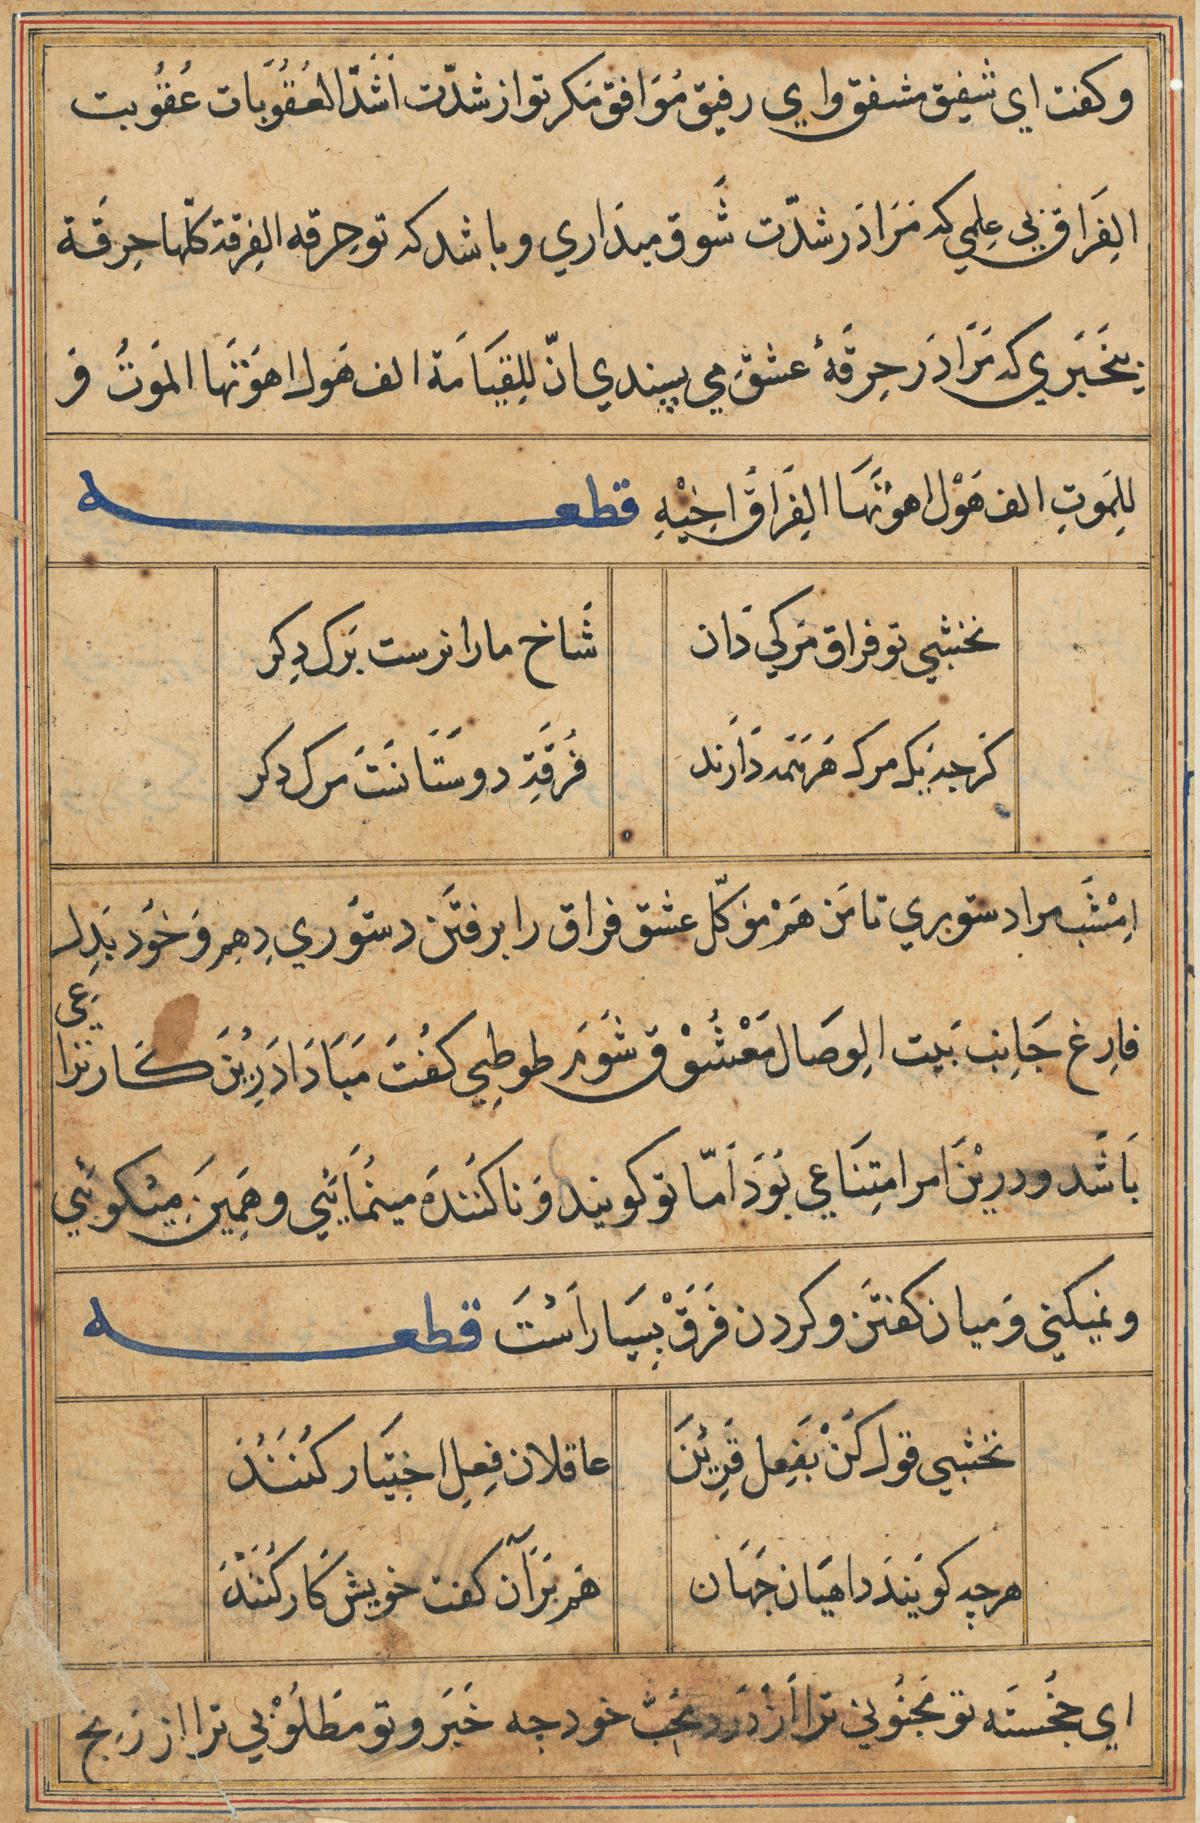 وکفت ای شفیق مشفق وای رفیق مُوَافق مَکر تو از شدّت اَشَدّ العُقُوبَات عُقُوبت
الفِرَاق بی عِلمی که مَرَا دَر شدّت شَوق میدَاری وباشد که تو حِرقه الفِرقة کلّها حِرقَة
بیخَبَری که مَرَا دَر حِرقَهٔ عشق می پسندی انّ للِقیَامَة الف هَول اهوَنهَا المَوتُ وَ
للِمَوتِ الف هَوْل اهوَنهَا الفِرَاقُ اخِیْهِ قطعه
نخشبی تو فراق مَرکی دَان
شَاخ مارا نرست بَرک دِکر
کَرچه یَک مرک هَر تنَه دَارند
فُرقَةِ دوستَانتَ مرک دِکر
اِمْشَبْ مرا دستوری تا مَن هَمْ موَکّل عشق فراق را برفتَن دستوری دِهم وَخُود بَدِل
فارغ جَانِبْ بَیت الوِصَال مَعْشُوْق شوَم طوطی کفُت مَبَادَا دَرِیْنَ کَار نزاعی
بَاشَد ودریْنَ امر امتِنَاعی بَوَد اَمّا تو کویند وَ ناکنَندَه مینمَایَی وهَمِینَ میْکویَی
ونمیکنی وَمیان کفتَن وکردن فَرَقْ بِسیَار اَسْتَ قطعه
نخشبی قول کُنْ بَفِعل قَرِیْنَ
عاقلان فِعلِ اختیَار کُنَنَدْ
هرچه کویَندَ داهیَان جَهَان
هَم بَرَآن کفت خویش کَار کُنَنَدْ
ای خجُستَه تو مَجنُونی ترا اَزْ دَرد خود چه خَبَر وتو مَطلُوْبی ترا از رَنج